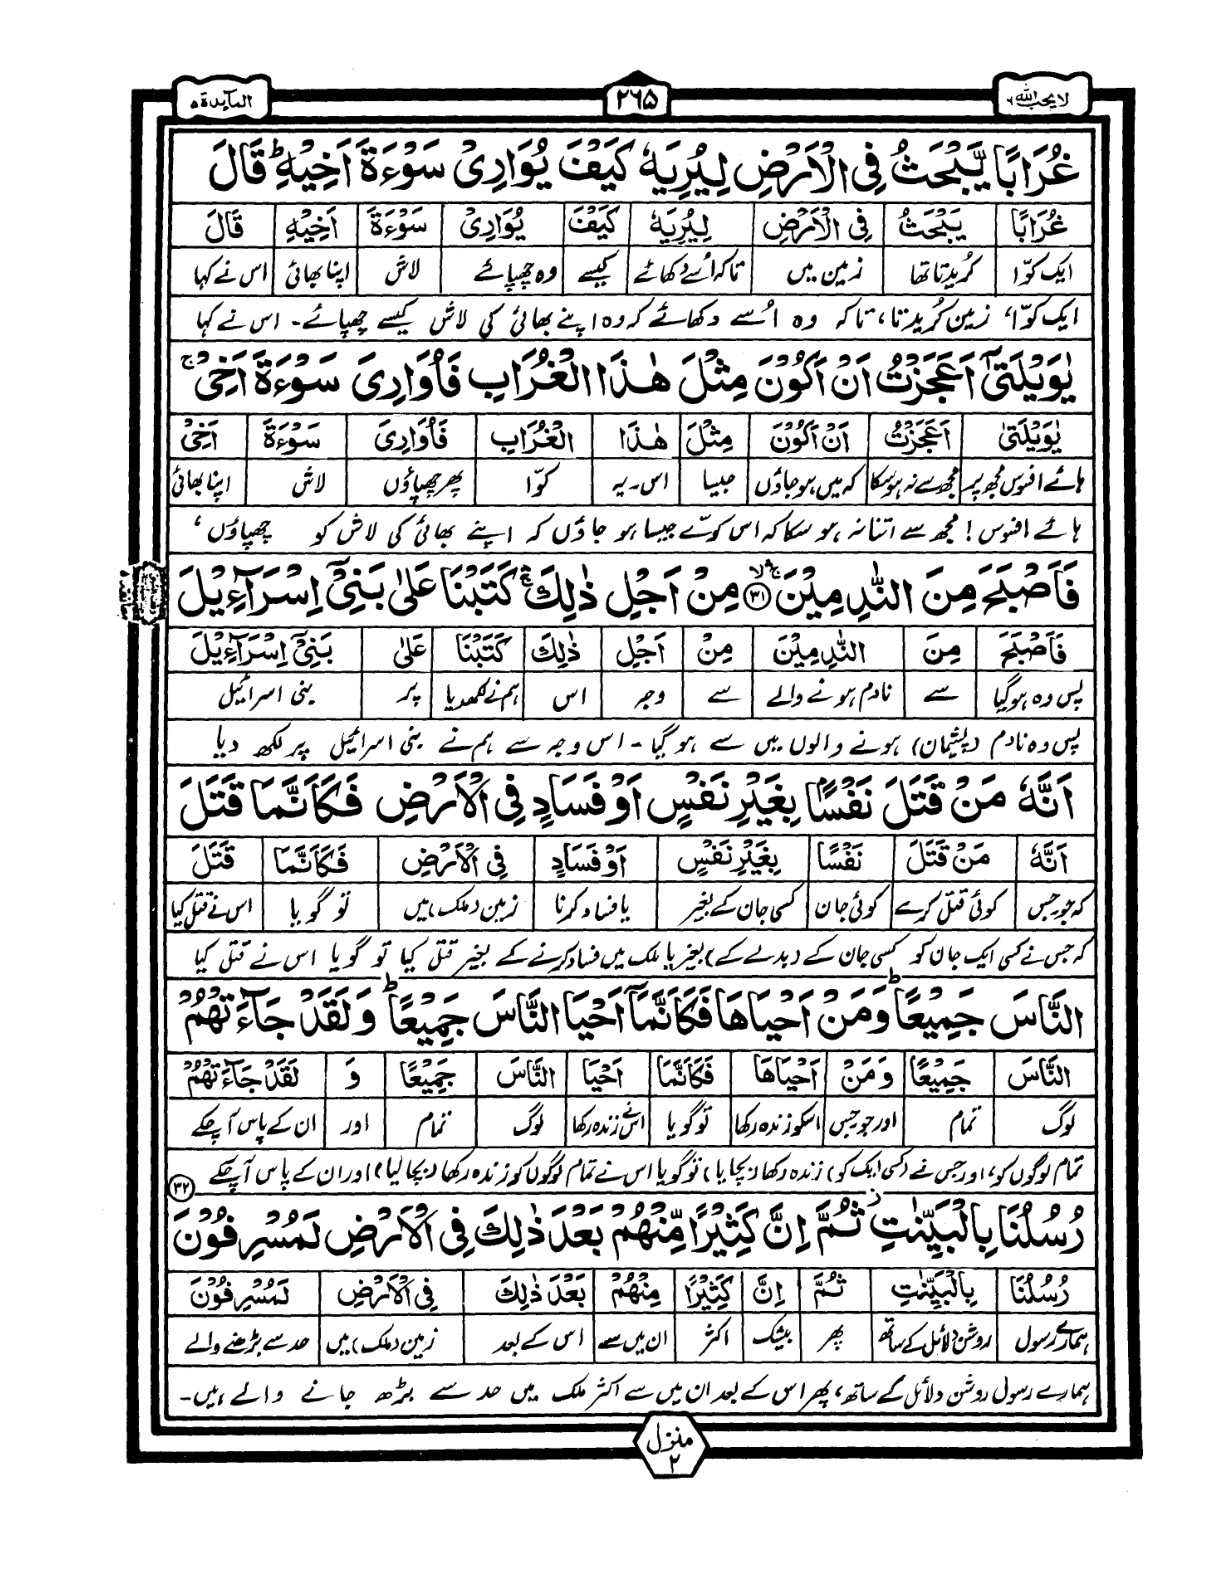 لا یحب اللہ ٦
٢٦٥
المآىِٕدة ٥
غُرَابًا يَّبْحَثُ فِي الْاَرْضِ لِيُرِيَهٗ كَيْفَ يُوَارِيْ سَوْءَةَ اَخِيْهِ ؕ قَالَ
غُرَابًا يَبْحَثُ فِي الْاَرْضِ لِيُرِيَهٗ كَيْفَ يُوَارِيْ سَوْءَةَ اَخِيْهِ قَالَ
ایک کوّا کُریدتا تھا زمین میں تاکہ اُسے دکھائے کیسے وہ چھپائے لاش اپنا بھائی اس نے کہا
ایک کوّا، زمین کُریدتا، تاکہ وہ اُسے دکھائے کہ وہ اپنے بھائی کی لاش کیسے چھپائے۔ اس نے کہا
يٰوَيْلَتٰۤى اَعَجَزْتُ اَنْ اَكُوْنَ مِثْلَ هٰذَا الْغُرَابِ فَاُوَارِيَ سَوْءَةَ اَخِيْ ۚ
يٰوَيْلَتٰى اَعَجَزْتُ اَنْ اَكُوْنَ مِثْلَ هٰذَا الْغُرَابِ فَاُوَارِيَ سَوْءَةَ اَخِيْ
ہائے افسوس مجھ پر مجھ سے نہ ہوسکا کہ میں ہوجاؤں جیسا اس۔یہ کوّا پھر چھپاؤں لاش اپنا بھائی
ہائے افسوس! مجھ سے اتنا نہ ہو سکا کہ اس کوّے جیسا ہو جاؤں کہ اپنے بھائی کی لاش کو چھپاؤں،
فَاَصْبَحَ مِنَ النّٰدِمِيْنَ ۛۚۙ ٣١ مِنْ اَجْلِ ذٰلِكَ ۛۚ كَتَبْنَا عَلٰى بَنِيْۤ اِسْرَآءِيْلَ
فَاَصْبَحَ مِنَ النّٰدِمِيْنَ مِنْ اَجْلِ ذٰلِكَ كَتَبْنَا عَلٰى بَنِيْۤ اِسْرَآءِيْلَ
پس وہ ہوگیا سے نادم ہونے والے سے وجہ اس ہم نے لکھدیا پر بنی اسرائیل
پس وہ نادم (پشیمان) ہونے والوں میں سے ہو گیا۔ اس وجہ سے ہم نے بنی اسرائیل پر لکھ دیا
اَنَّهٗ مَنْ قَتَلَ نَفْسًۢا بِغَيْرِ نَفْسٍ اَوْ فَسَادٍ فِي الْاَرْضِ فَكَاَنَّمَا قَتَلَ
اَنَّهٗ مَنْ قَتَلَ نَفْسًا بِغَيْرِ نَفْسٍ اَوْ فَسَادٍ فِي الْاَرْضِ فَكَاَنَّمَا قَتَلَ
کہ جو جس کوئی قتل کرے کوئی جان کسی جان کے بغیر یا فساد کرنا زمین (ملک) میں تو گویا اس نے قتل کیا
کہ جس نے کسی ایک جان کو کسی جان کے (بدلے کے) بغیر یا ملک میں فساد کرنے کے بغیر قتل کیا تو گویا اس نے قتل کیا
النَّاسَ جَمِيْعًا ؕ وَمَنْ اَحْيَاهَا فَكَاَنَّمَاۤ اَحْيَا النَّاسَ جَمِيْعًا ؕ وَلَقَدْ جَآءَتْهُمْ
النَّاسَ جَمِيْعًا وَمَنْ اَحْيَاهَا فَكَاَنَّمَا اَحْيَا النَّاسَ جَمِيْعًا وَ لَقَدْ جَآءَتْهُمْ
لوگ تمام اور جو جس اسکو زندہ رکھا تو گویا اسنے زندہ رکھا لوگ تمام اور ان کے پاس آ چکے
تمام لوگوں کو، اور جس نے (کسی ایک کو) زندہ رکھا (بچایا) تو گویا اس نے تمام لوگوں کو زندہ رکھا (بچا لیا) اور ان کے پاس آ چکے
رُسُلُنَا بِالْبَيِّنٰتِ ؗ ثُمَّ اِنَّ كَثِيْرًا مِّنْهُمْ بَعْدَ ذٰلِكَ فِي الْاَرْضِ لَمُسْرِفُوْنَ ٣٢
رُسُلُنَا بِالْبَيِّنٰتِ ثُمَّ اِنَّ كَثِيْرًا مِنْهُمْ بَعْدَ ذٰلِكَ فِي الْاَرْضِ لَمُسْرِفُوْنَ
ہمارے رسول روشن دلائل کے ساتھ پھر بیشک اکثر ان میں سے اس کے بعد زمین (ملک) میں حد سے بڑھنے والے
ہمارے رسول روشن دلائل کے ساتھ، پھر اس کے بعد ان میں سے اکثر ملک میں حد سے بڑھ جانے والے ہیں۔
منزل ٢